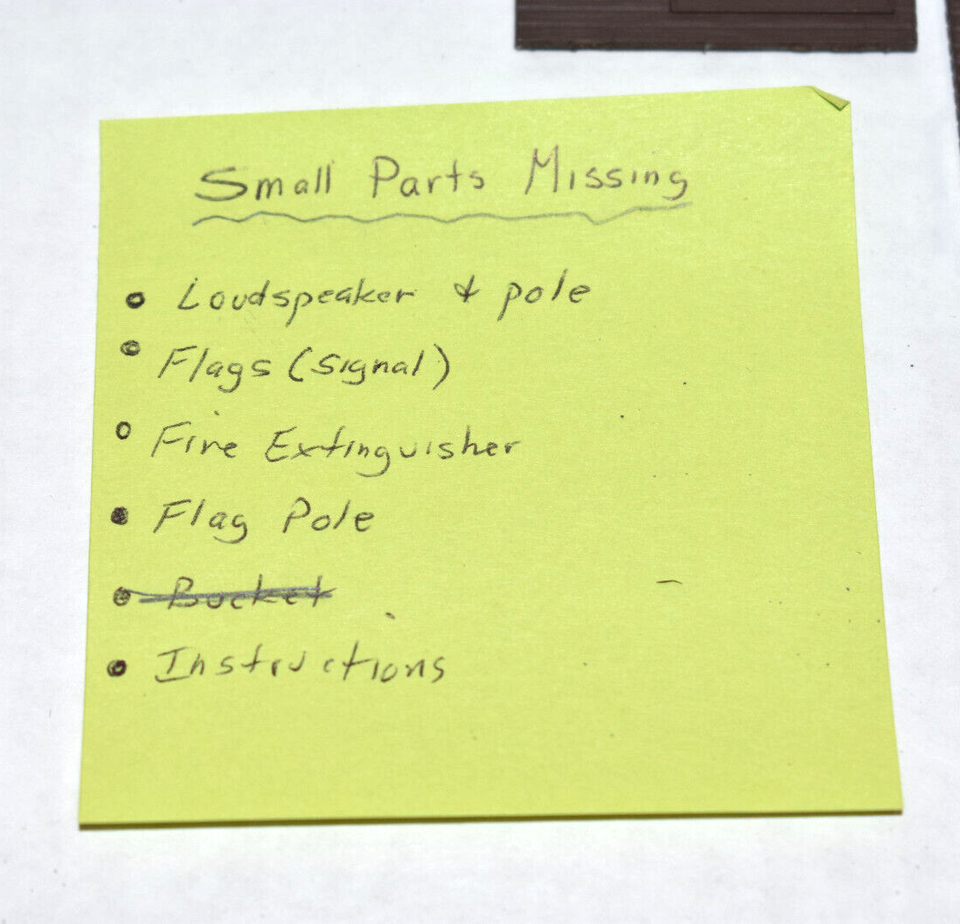 Small Parts Missing
Loudspeaker & pole
Flags (signal)
Fire Extinguisher
Flag Pole
Bucket
Instructions